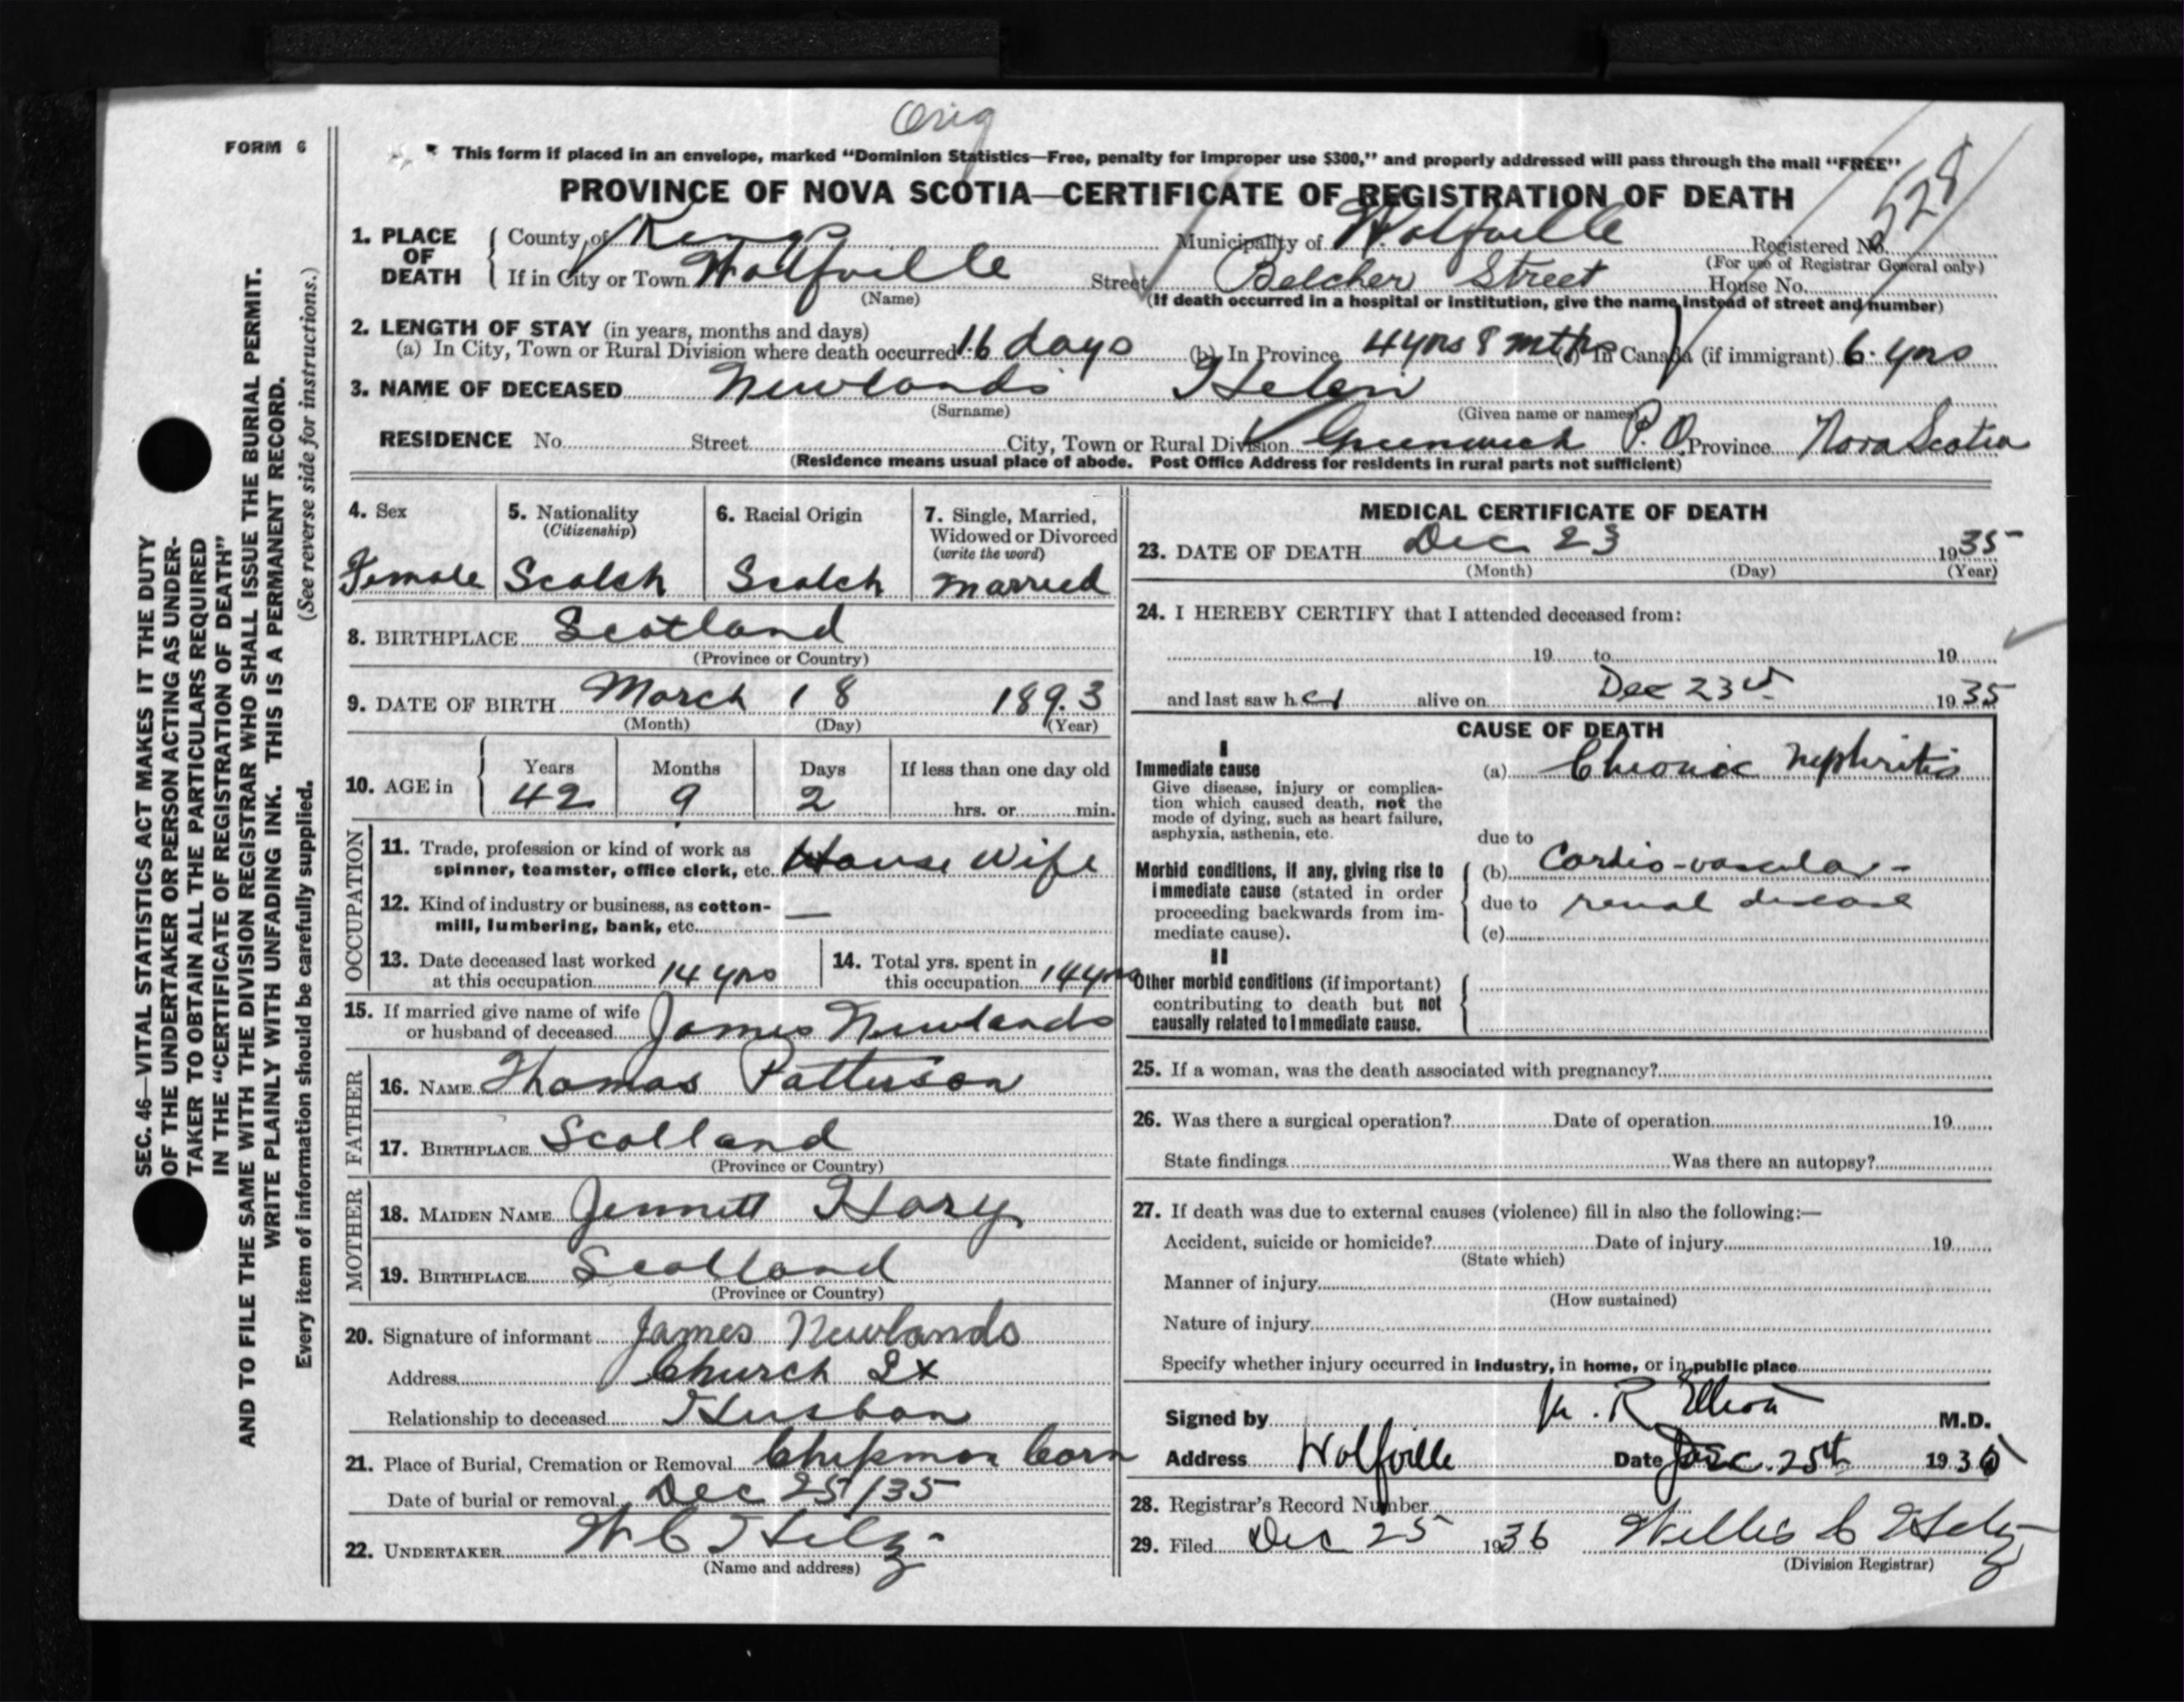 Orig
FORM 6
This form if placed in an envelope, marked “Dominion Statistics—Free, penalty for improper use $300,” and properly addressed will pass through the mail “FREE”
PROVINCE OF NOVA SCOTIA—CERTIFICATE OF REGISTRATION OF DEATH
1. PLACE OF DEATH County of Kings Municipality of Wolfville Registered No.
(For use of Registrar General only)
If in City or Town Wolfville Street Belcher Street House No.
(Name) (If death occurred in a hospital or institution, give the name instead of street and number)
2. LENGTH OF STAY (in years, months and days)
(a) In City, Town or Rural Division where death occurred 16 days (b) In Province 4 yrs 8 mths (c) In Canada (if immigrant) 6 yrs
3. NAME OF DECEASED Newlands Helen
(Surname) (Given name or names)
RESIDENCE No. Street City, Town or Rural Division Greenwich P.O. Province Nova Scotia
(Residence means usual place of abode. Post Office Address for residents in rural parts not sufficient)
4. Sex
Female
5. Nationality
(Citizenship)
Scotch
6. Racial Origin
Scotch
7. Single, Married,
Widowed or Divorced
(write the word)
Married
8. BIRTHPLACE Scotland
(Province or Country)
9. DATE OF BIRTH March 18 1893
(Month) (Day) (Year)
10. AGE in Years Months Days If less than one day old
42 9 2 hrs. or min.
OCCUPATION
11. Trade, profession or kind of work as
spinner, teamster, office clerk, etc. House Wife
12. Kind of industry or business, as cotton- —
mill, lumbering, bank, etc.
13. Date deceased last worked
at this occupation 14 yrs
14. Total yrs. spent in
this occupation 14 yrs
15. If married give name of wife
or husband of deceased James Newlands
FATHER
16. NAME Thomas Patterson
17. BIRTHPLACE Scotland
(Province or Country)
MOTHER
18. MAIDEN NAME Jennett
19. BIRTHPLACE Scotland
(Province or Country)
20. Signature of informant James Newlands
Address Church St
Relationship to deceased Husban
21. Place of Burial, Cremation or Removal Chipman Corn
Date of burial or removal Dec 25/35
22. UNDERTAKER W C
(Name and address)
MEDICAL CERTIFICATE OF DEATH
23. DATE OF DEATH Dec 23 1935
(Month) (Day) (Year)
24. I HEREBY CERTIFY that I attended deceased from:
19 to 19
and last saw her alive on Dec 23rd 1935
CAUSE OF DEATH
I
Immediate cause
Give disease, injury or complica-
tion which caused death, not the
mode of dying, such as heart failure,
asphyxia, asthenia, etc.
(a) Chronic Nephritis
due to
Morbid conditions, if any, giving rise to
immediate cause (stated in order
proceeding backwards from im-
mediate cause).
(b) Cardio-vascular-
due to renal disease
(c)
II
Other morbid conditions (if important)
contributing to death but not
causally related to immediate cause.
25. If a woman, was the death associated with pregnancy?
26. Was there a surgical operation? Date of operation 19
State findings Was there an autopsy?
27. If death was due to external causes (violence) fill in also the following:—
Accident, suicide or homicide? Date of injury 19
(State which)
Manner of injury
(How sustained)
Nature of injury
Specify whether injury occurred in industry, in home, or in public place
Signed by R. Elliott M.D.
Address Wolfville Date Dec. 25th 193
28. Registrar’s Record Number
29. Filed Dec 25 1936 Willis C
(Division Registrar)
SEC. 46—VITAL STATISTICS ACT MAKES IT THE DUTY
OF THE UNDERTAKER OR PERSON ACTING AS UNDER-
TAKER TO OBTAIN ALL THE PARTICULARS REQUIRED
IN THE “CERTIFICATE OF REGISTRATION OF DEATH”
AND TO FILE THE SAME WITH THE DIVISION REGISTRAR WHO SHALL ISSUE THE BURIAL PERMIT.
WRITE PLAINLY WITH UNFADING INK. THIS IS A PERMANENT RECORD.
Every item of information should be carefully supplied. (See reverse side for instructions.)